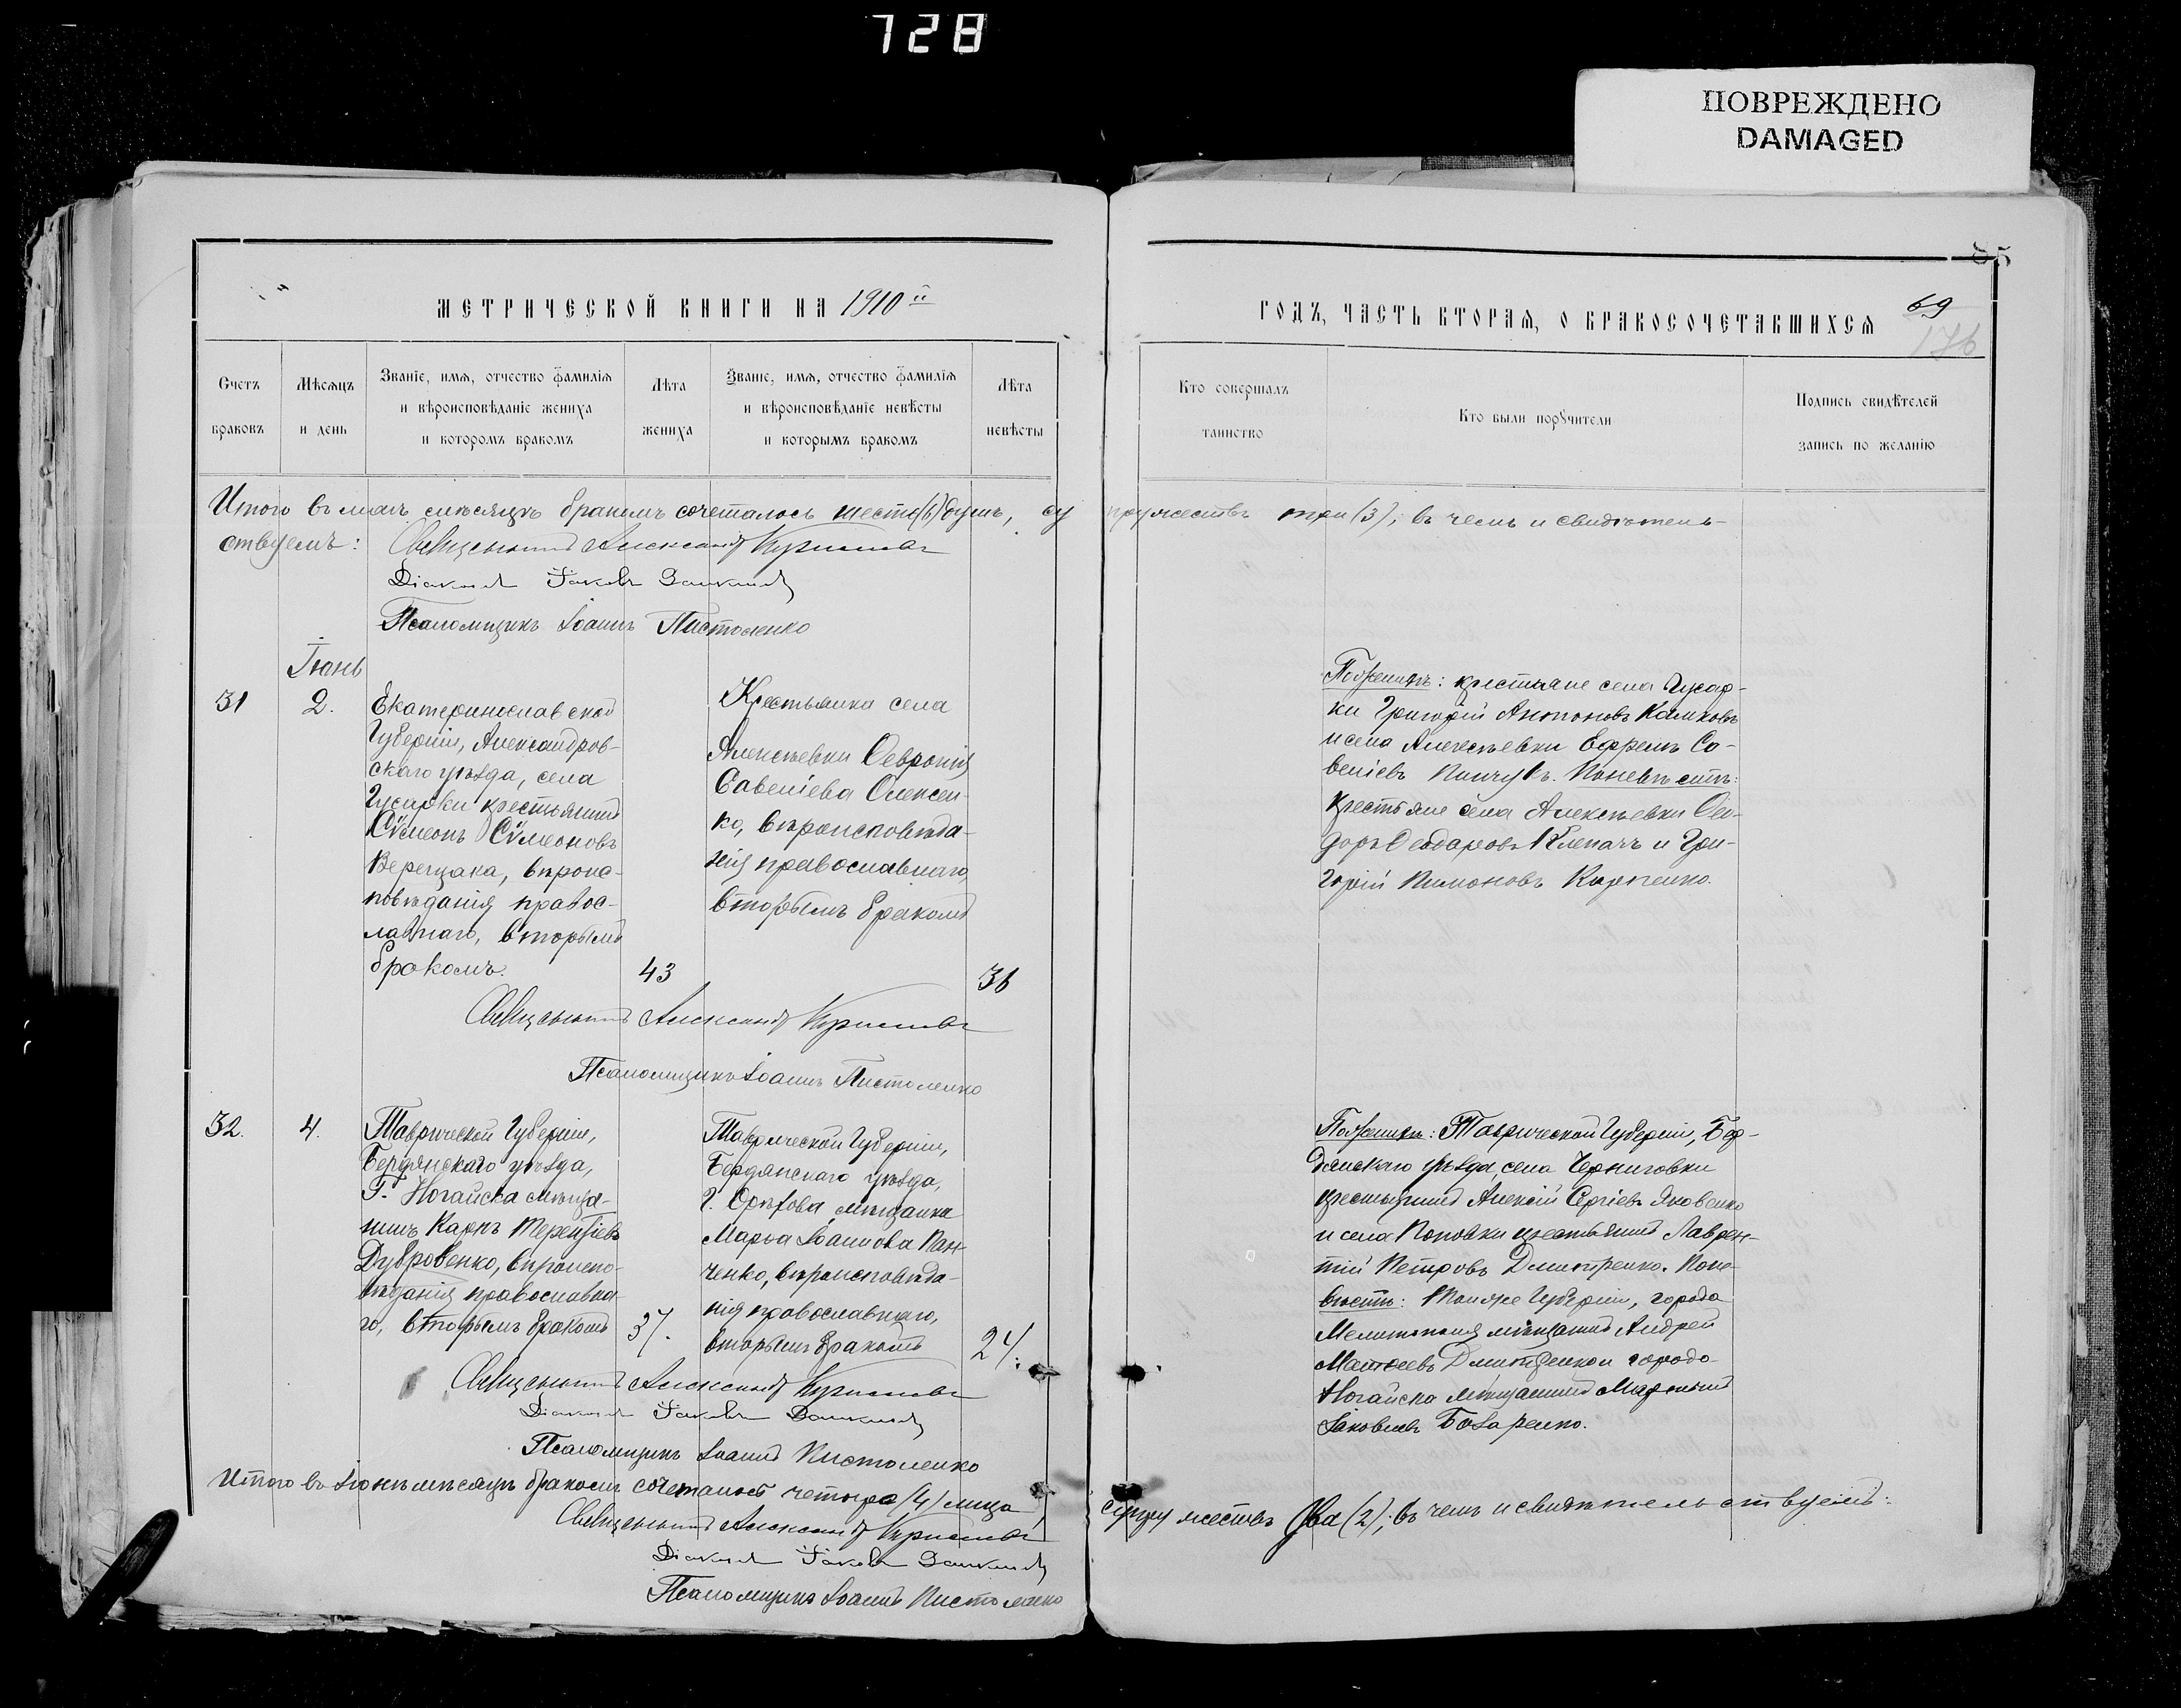 728
ПОВРЕЖДЕНО
DAMAGED
85
МЕТРИЧЕСКОЙ КНИГИ НА 1910й
ГОДЪ, ЧАСТЬ ВТОРАЯ, О БРАКОСОЧЕТАВШИХСЯ
69
176
Счетъ
браковъ
Мѣсяцъ
и день
Званіе, имя, отчество фамилія
и вѣроисповѣданіе жениха
и которомъ бракомъ
Лѣта
жениха
Званіе, имя, отчество фамилія
и вѣроисповѣданіе невѣсты
и которымъ бракомъ
Лѣта
невѣсты
Кто совершалъ
таинство
Кто были поручители
Подпись свидѣтелей
запись по желанію
Итого въ маѣ мѣсяцѣ бракомъ сочеталось шесть (6) душъ, су
пружествъ три (3); въ чемъ и свидѣтель-
ствуемъ: Священникъ Александръ
Діаконъ Іаковъ
Псаломщикъ Іоаннъ Пистоленко
Іюнь
31
2.
Екатеринославской
Губерніи, Александров-
скаго уѣзда, села
Гусарки крестьянинъ
Сѵмеонъ Сѵмеоновъ
Верещака, вѣроис-
повѣданія правос-
лавнаго, вторымъ
бракомъ.
43
Крестьянка села
Алексѣевки Ѳевронія
Савеліева Олексен-
ко, вѣроисповѣда-
нія православнаго,
вторымъ бракомъ
36
Подженихѣ: крестьяне села Гусар-
ки Григорій Антоновъ Калмковъ
и села Алексѣевки Ефремъ Са-
веліевъ По невѣстѣ:
крестьяне села Алексѣевки Ѳео-
доръ Ѳеодоровъ Клепачъ и Гри-
горій Пимоновъ Карпенко.
Священникъ Александръ
Псаломщикъ Іоаннъ Пистоленко
32.
4.
Таврической Губерніи,
Бердянскаго уѣзда,
Г. Ногайска мѣща-
нинъ Карпъ Терентіевъ
Дубровенко, вѣроиспо-
вѣданія православна-
го, вторымъ бракомъ
37.
Таврической Губерніи,
Бердянскаго уѣзда,
г. Орѣхова мѣщанка
Марѳа Іоаннова Пан-
ченко, вѣроисповѣда-
нія православнаго,
вторымъ бракомъ
24.
По женихѣ: Таврической Губерніи, Бер-
дянскаго уѣзда, села Черниговки
крестьянинъ Алексій Сергіевъ Яковенко
и села Поповки крестьянинъ Лаврен-
тій Петровъ Дмитренко. По не-
вѣстѣ: Той же Губерніи, города
Мелитополя мѣщанинъ Андрей
Матѳеевъ Дмитренко и города
Ногайска мѣщанинъ
Іаковлевъ Бозаренко.
Священникъ Александръ
Діаконъ Іаковъ
Псаломщикъ Іоаннъ Пистоленко
Итого въ Іюнѣ мѣсяцѣ бракомъ сочеталось четыре (4) лица,
супружествъ два (2); въ чемъ и свидѣтельствуемъ:
Священникъ Александръ
Діаконъ Іаковъ
Псаломщикъ Іоаннъ Пистоленко